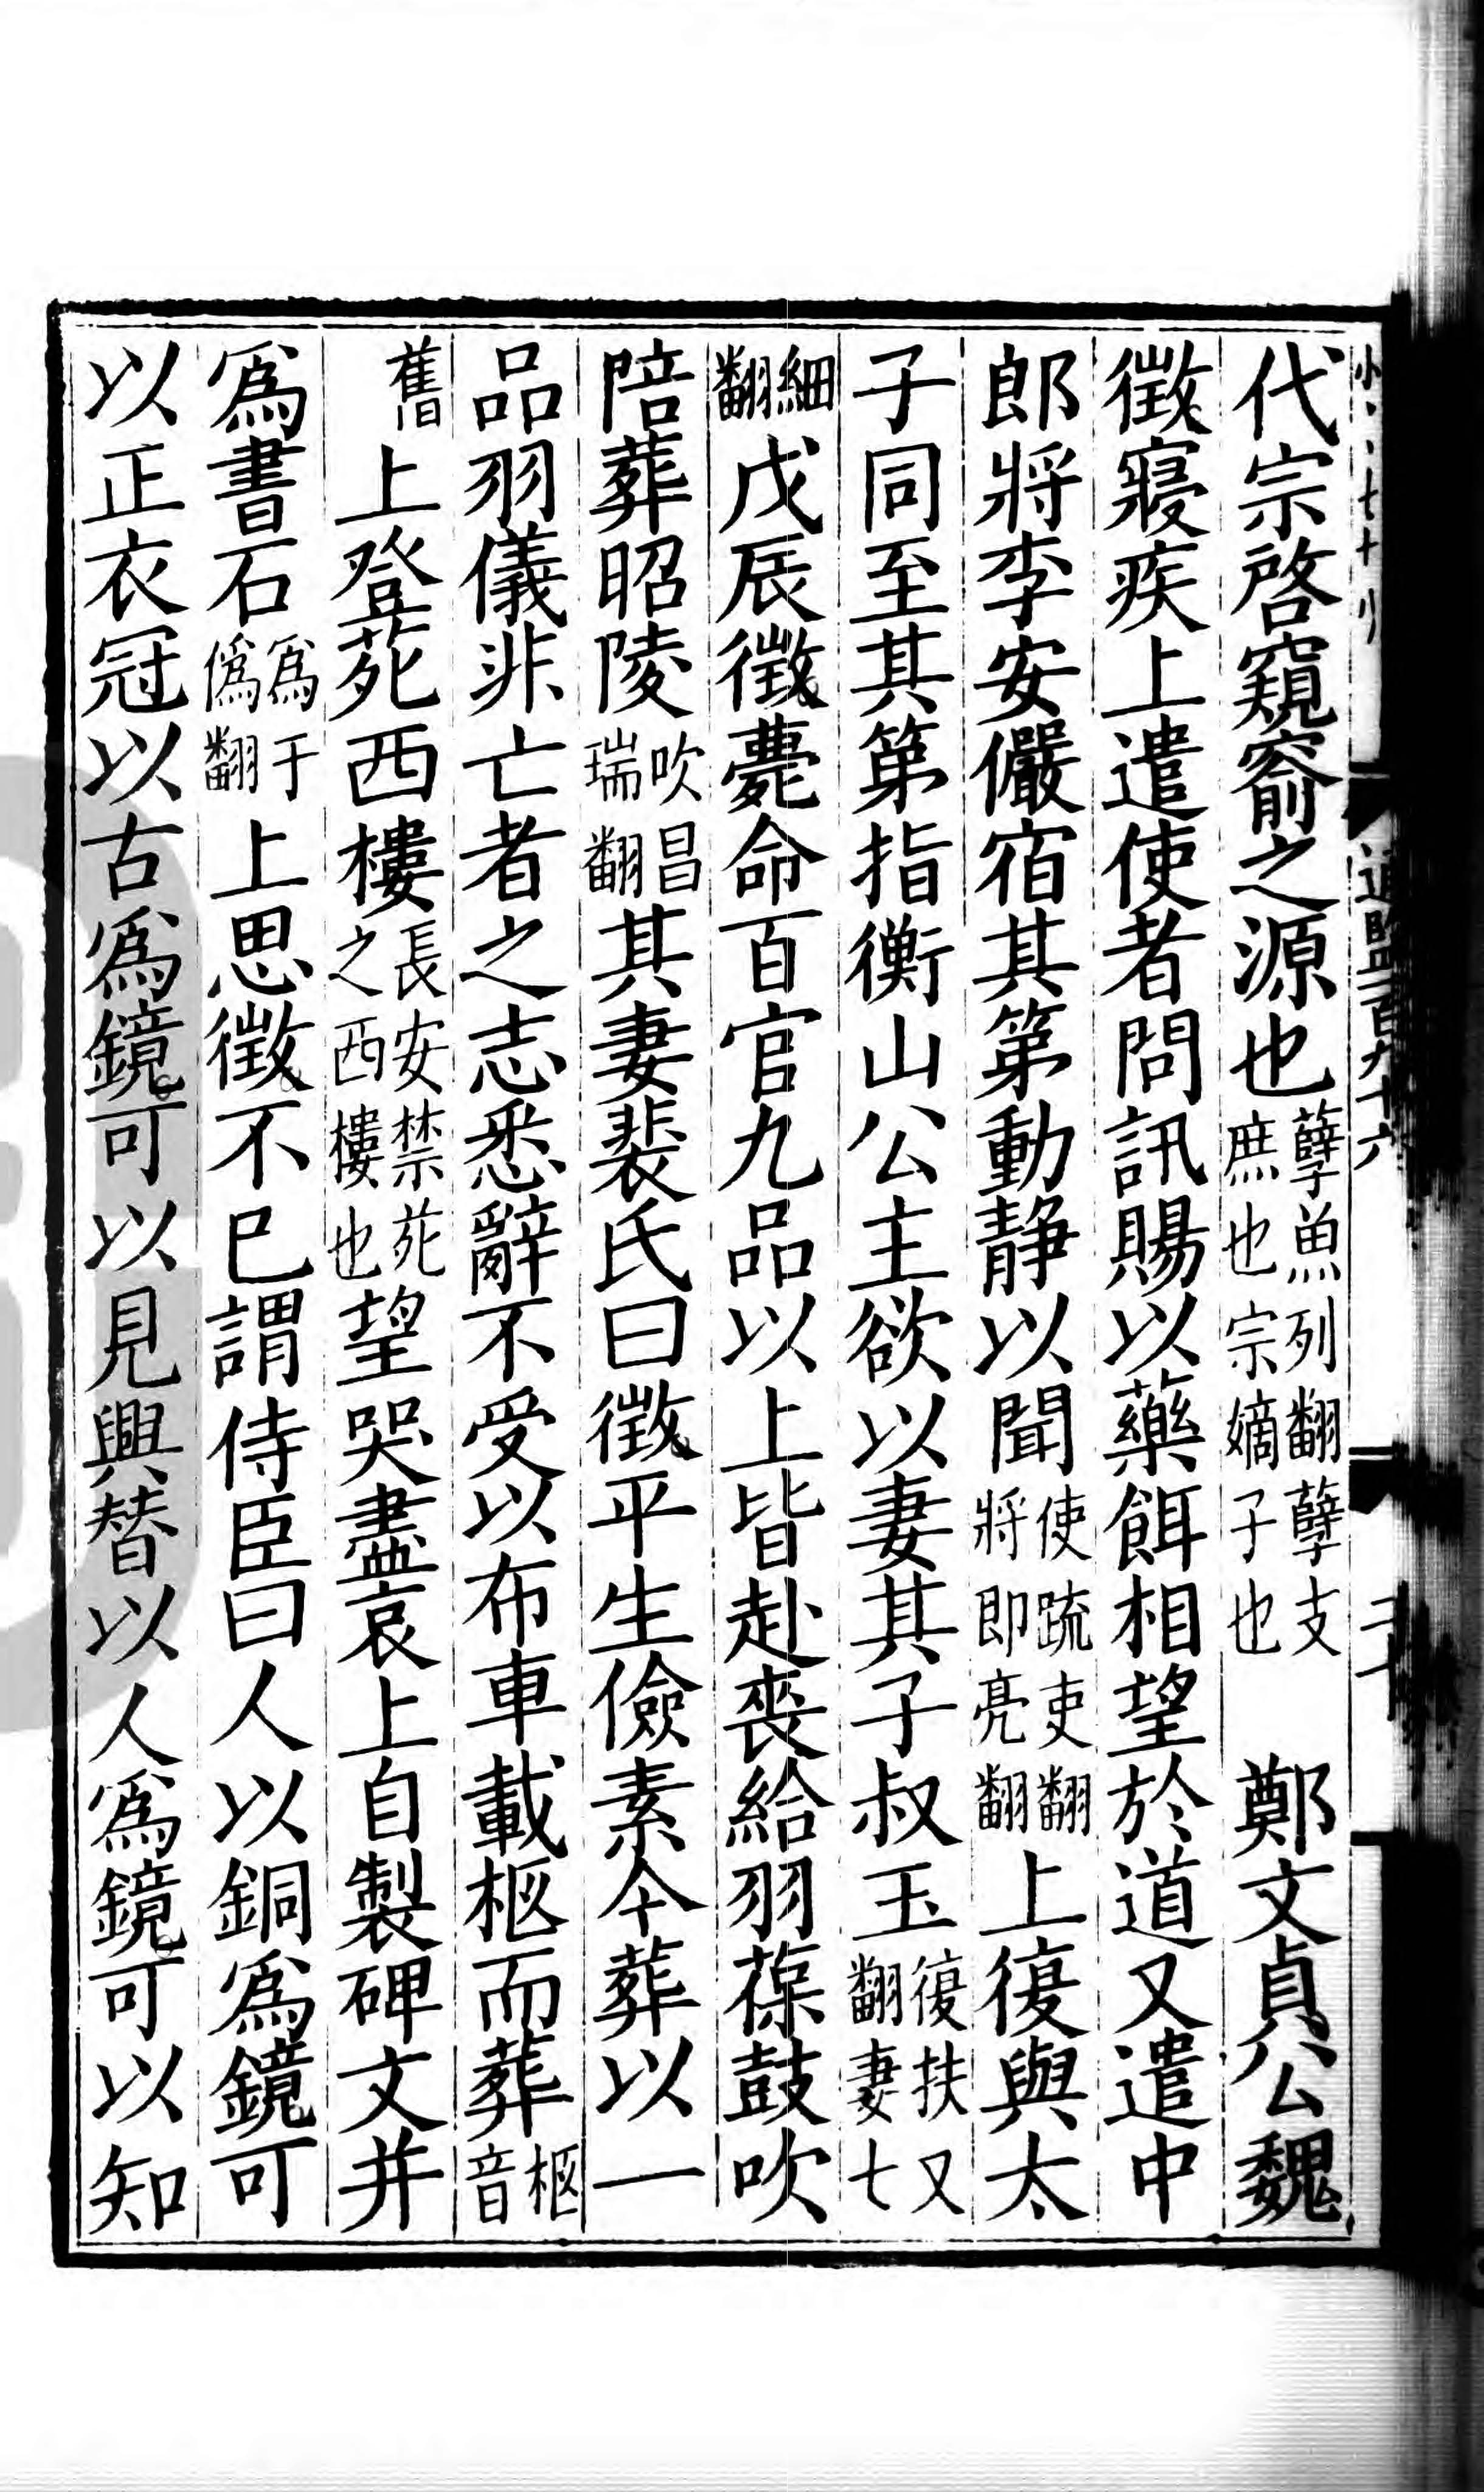 代宗啓窺窬之源也孽魚列翻孽支庶也宗嫡子也鄭文貞公魏
徵寢疾上遣使者問訊賜以藥餌相望於道又遣中
郎將李安儼宿其第動靜以聞使疏吏翻將即亮翻上復與太
子同至其第指衡山公主欲以妻其子叔玉復扶又翻妻七
細翻戊辰徵薨命百官九品以上皆赴喪給羽葆鼓吹
陪葬昭陵吹昌瑞翻其妻裴氏曰徵平生儉素今葬以一
品羽儀非亡者之志悉辭不受以布車載柩而葬柩音
舊上登苑西樓長安禁苑之西樓也望哭盡哀上自製碑文并
爲書石爲于僞翻上思徵不已謂侍臣曰人以銅爲鏡可
以正衣冠以古爲鏡可以見興替以人爲鏡可以知
通鑑一百九十六